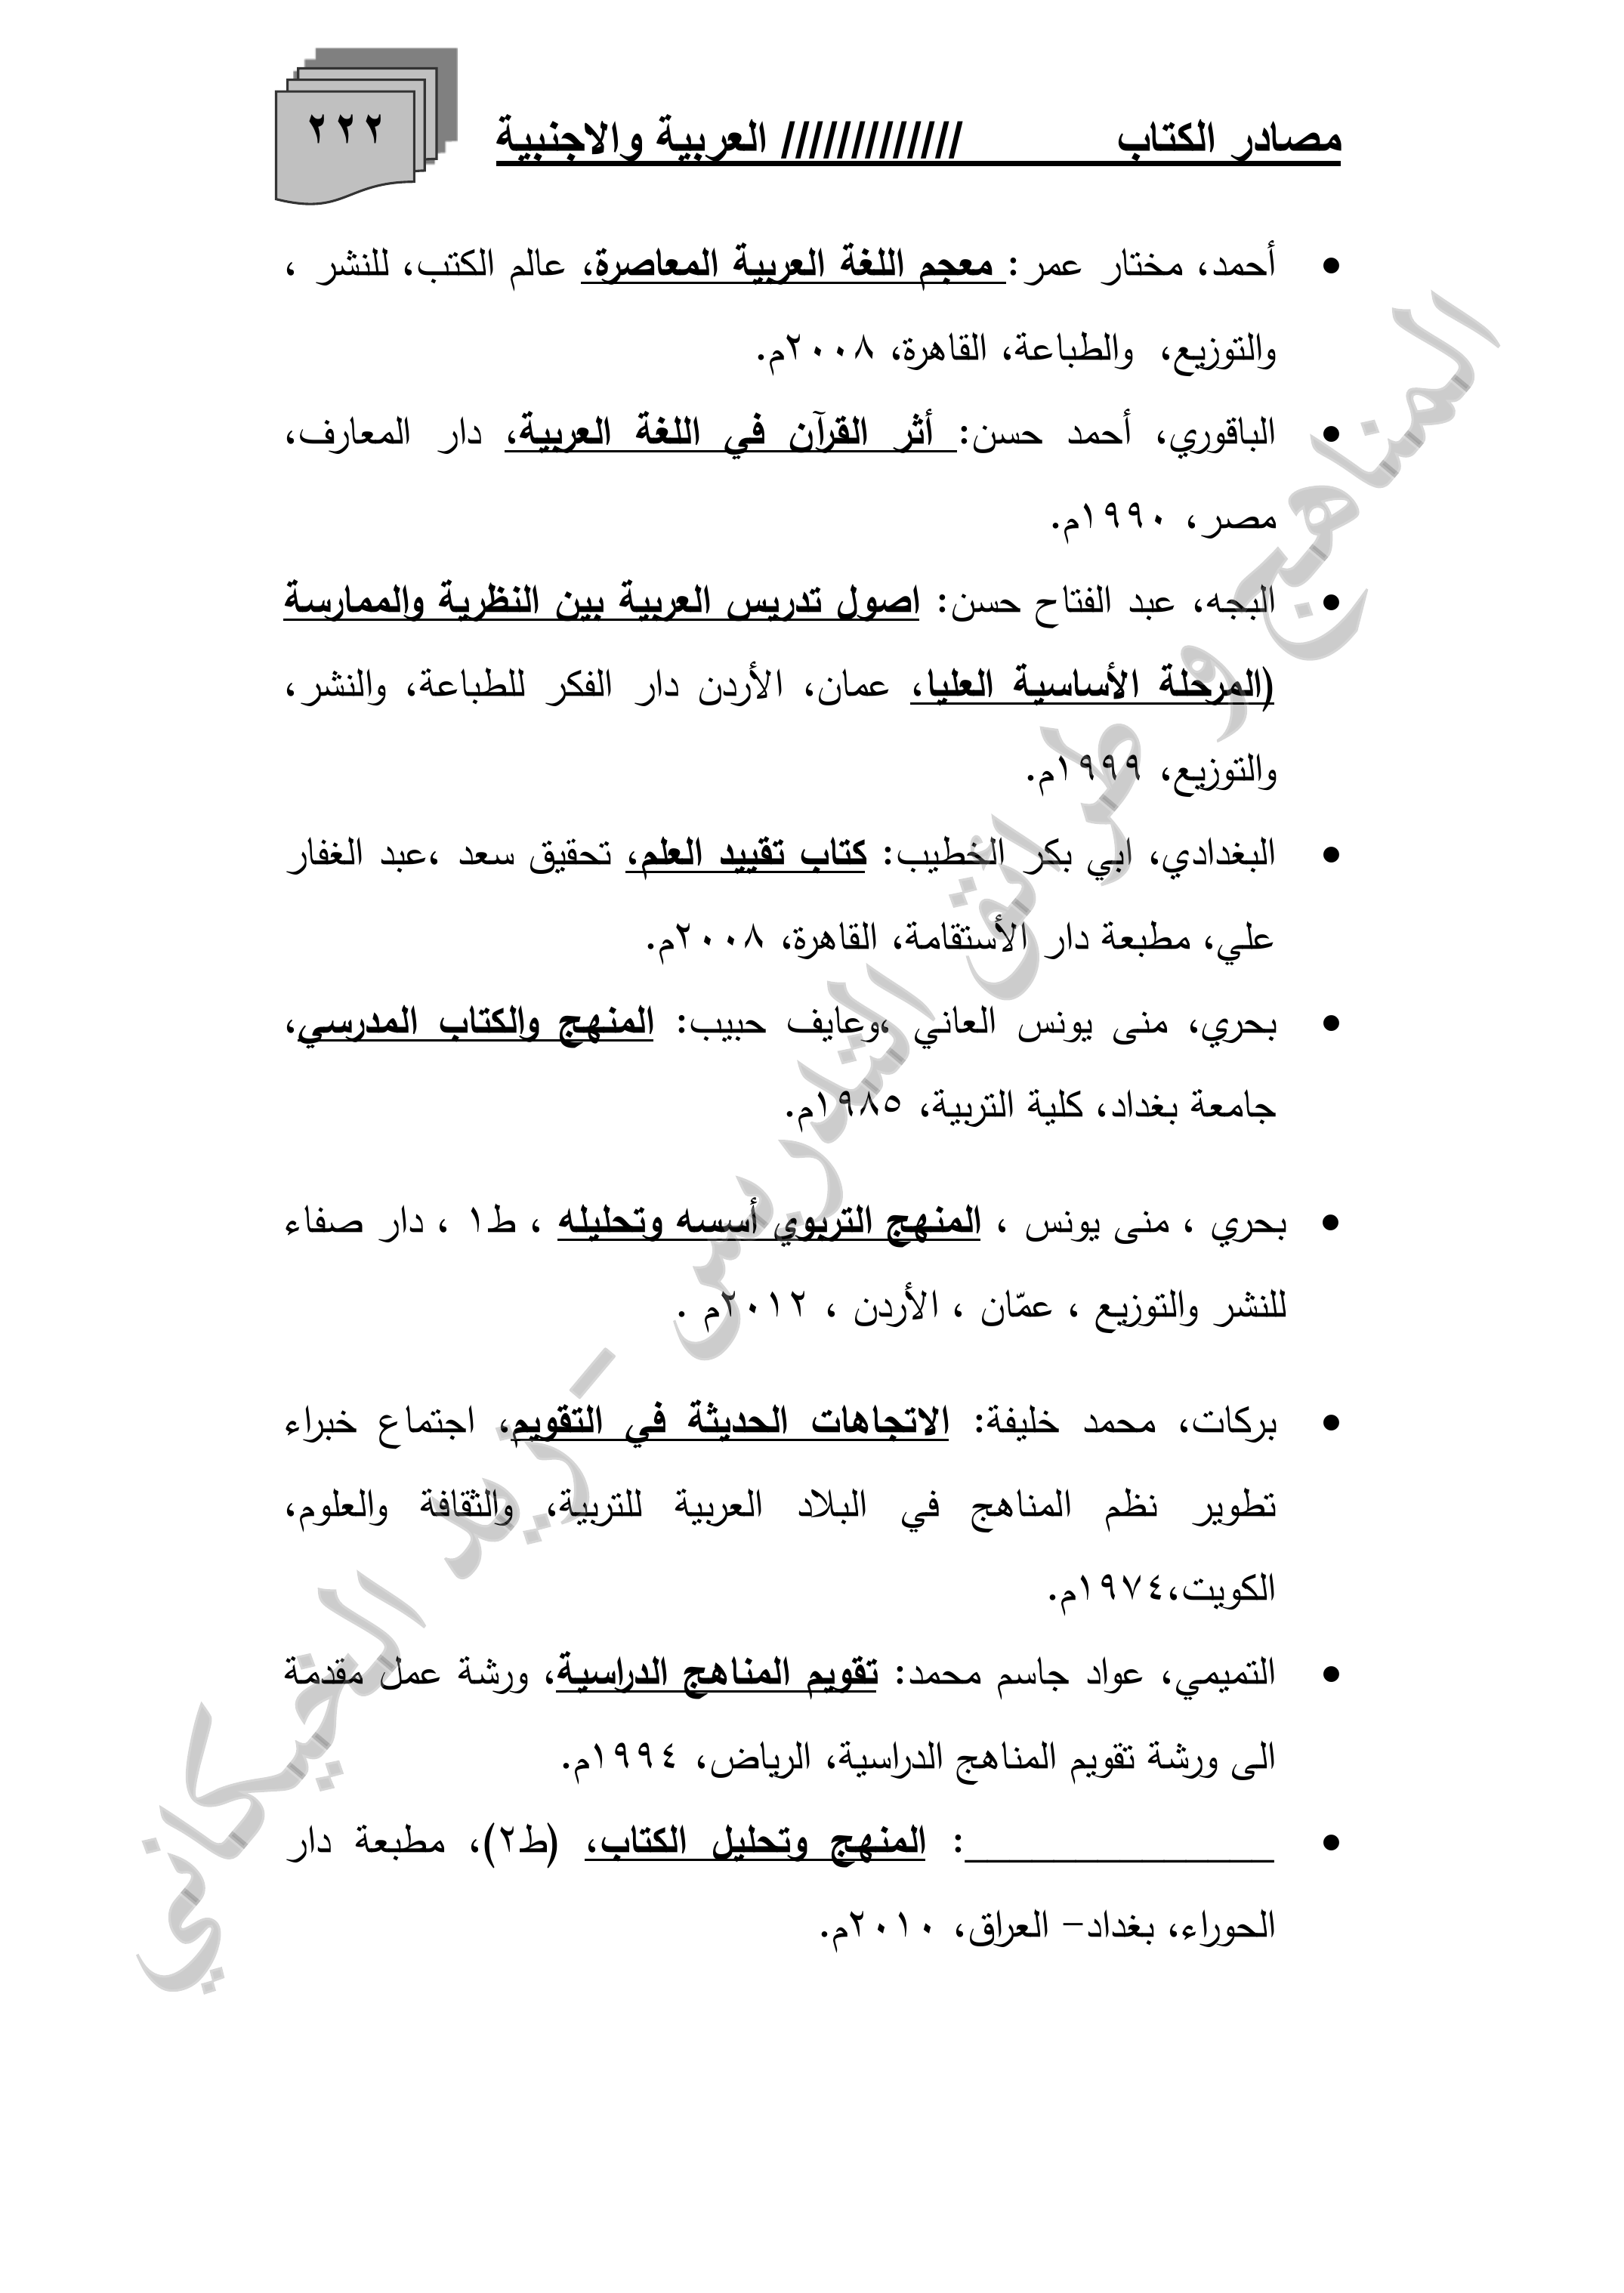 مصادر الكتاب ///////////// العربية والاجنبية
٢٢٢
• أحمد، مختار عمر: معجم اللغة العربية المعاصرة، عالم الكتب، للنشر ،
والتوزيع، والطباعة، القاهرة، ٢٠٠٨م.
• الباقوري، أحمد حسن: أثر القرآن في اللغة العربية، دار المعارف،
مصر، ١٩٩٠م.
• البجه، عبد الفتاح حسن: اصول تدريس العربية بين النظرية والممارسة
(المرحلة الأساسية العليا، عمان، الأردن دار الفكر للطباعة، والنشر،
والتوزيع، ١٩٩٩م.
• البغدادي، ابي بكر الخطيب: كتاب تقييد العلم، تحقيق سعد ،عبد الغفار
علي، مطبعة دار الأستقامة، القاهرة، ٢٠٠٨م.
• بحري، منى يونس العاني ،وعايف حبيب: المنهج والكتاب المدرسي،
جامعة بغداد، كلية التربية، ١٩٨٥م.
• بحري ، منى يونس ، المنهج التربوي أسسه وتحليله ، ط١ ، دار صفاء
للنشر والتوزيع ، عمّان ، الأردن ، ٢٠١٢م .
• بركات، محمد خليفة: الاتجاهات الحديثة في التقويم، اجتماع خبراء
تطوير نظم المناهج في البلاد العربية للتربية، والثقافة والعلوم،
الكويت،١٩٧٤م.
• التميمي، عواد جاسم محمد: تقويم المناهج الدراسية، ورشة عمل مقدمة
الى ورشة تقويم المناهج الدراسية، الرياض، ١٩٩٤م.
• ______________: المنهج وتحليل الكتاب، (ط٢)، مطبعة دار
الحوراء، بغداد- العراق، ٢٠١٠م.
المناهج و طرائق التدريس - زيد الخيكاني